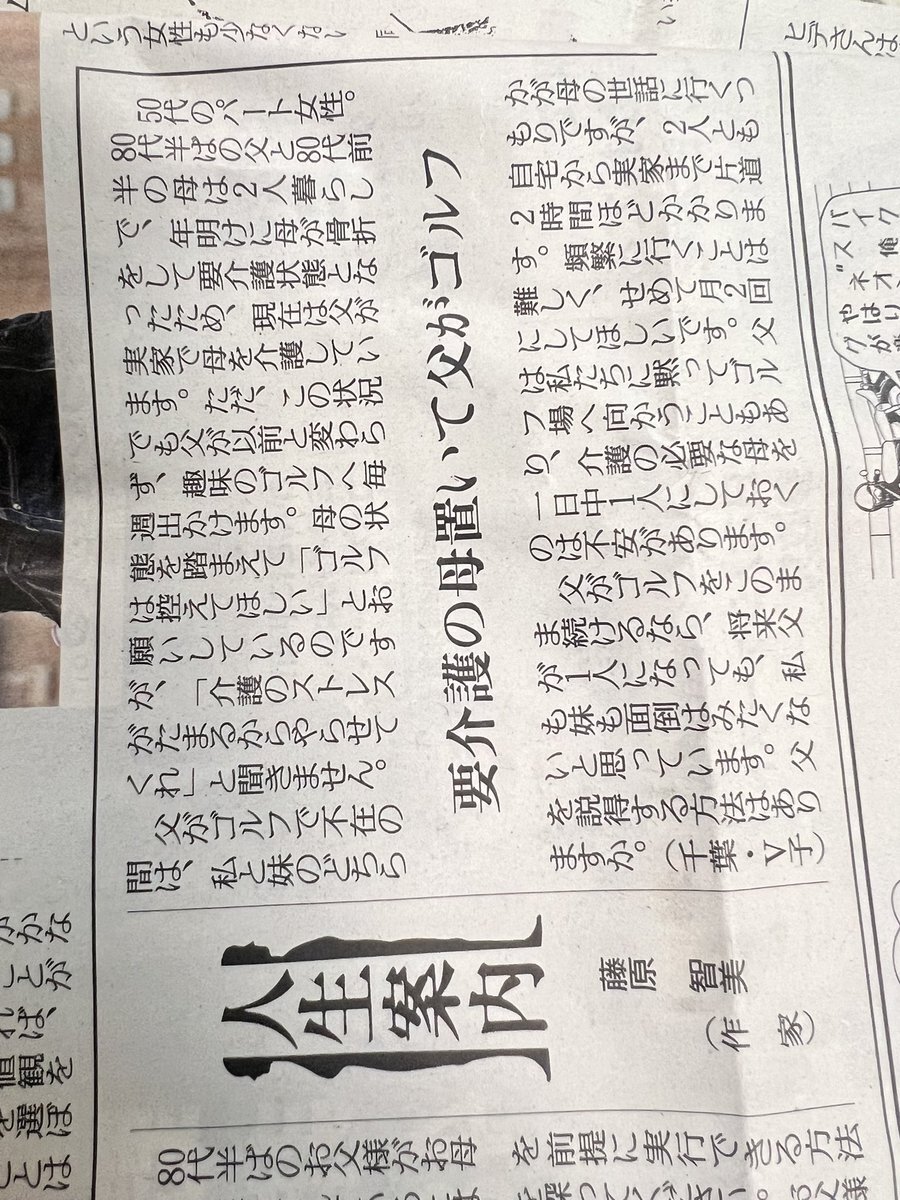 要介護の母置いて父がゴルフ
50代のパート女性。
80代半ばの父と80代前
半の母は２人暮らし
で、年明けに母が骨折
をして要介護状態とな
ったため、現在は父が
実家で母を介護してい
ます。ただ、この状況
でも父が以前と変わら
ず、趣味のゴルフへ毎
週出かけます。母の状
態を踏まえて「ゴルフ
は控えてほしい」とお
願いしているのです
が、「介護のストレス
がたまるからやらせて
くれ」と聞きません。
父がゴルフで不在の
間は、私と妹のどちら
かが母の世話に行くつ
もりですが、２人とも
自宅から実家まで片道
２時間ほどかかりま
す。頻繁に行くことは
難しく、せめて月２回
にしてほしいです。父
は私たちに黙ってゴル
フ場へ向かうこともあ
り、介護の必要な母を
一日中１人にしておく
のは不安があります。
父がゴルフをこのま
ま続けるなら、将来父
が１人になっても、私
も妹も面倒はみたくな
いと思っています。父
を説得する方法はあり
ますか。（千葉・Ｖ子）
人生案内
藤原 智美
（作 家）
80代半ばのお父様がお母
を前提に実行できる方法
という女性も少なくない
ヒデさんは
ことが
値観を
を選ば
ことは